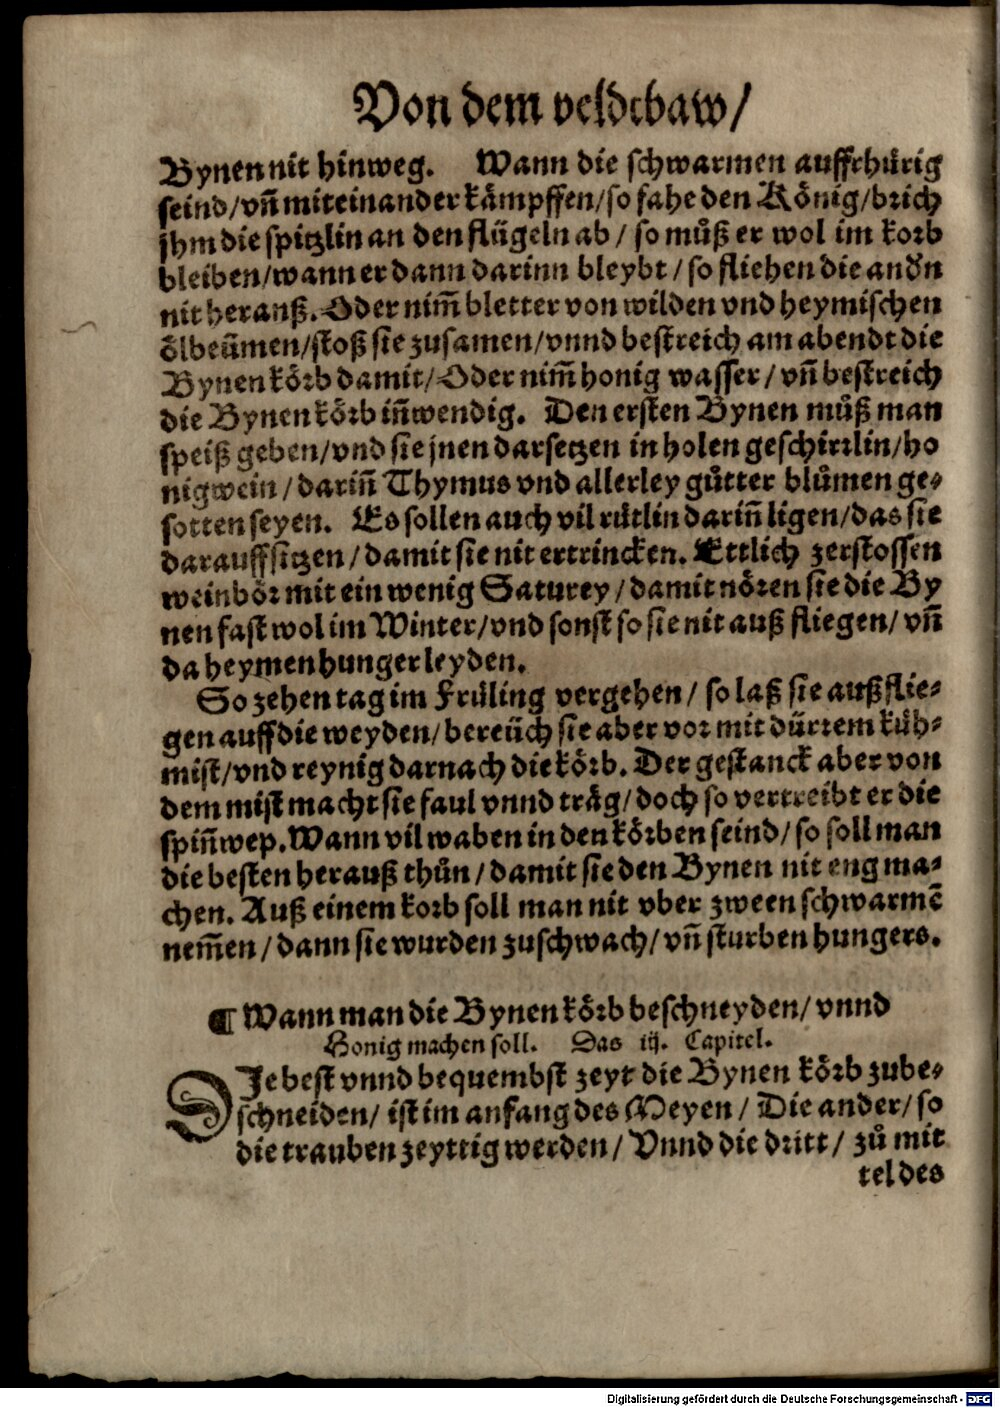 Von dem veldtbaw/
Bynen nit hinweg. Wann die schwarmen auffrhürig
seind/vn̄ miteinander kämpffen/so fahe den König/brich
jhm die spitzlin an den flügeln ab/ so můß er wol im korb
bleiben/wann er dann darinn bleybt/so fliehen die andn
nit herauß. Oder nim̄ bletter von wilden vnd heymischen
ölbeümen/stoß sie zusamen/vnnd bestreich am abendt die
Bynen körb damit/Oder nim̄ honig wasser/vn̄ bestreich
die Bynen körb in̄wendig. Den ersten Bynen můß man
speiß geben/vnd sie jnen darsetzen in holen geschirrlin/ho
nigwein/darin̄ Thymus vnd allerley gůtter blůmen ge-
sotten seyen. Es sollen auch vil rütlin darin̄ ligen/das sie
darauff sitzen/damit sie nit ertrincken. Ettlich zerstossen
weinbör mit ein wenig Saturey/damit nören sie die By
nen fast wol im Winter/vnd sonst so sie nit auß fliegen/vn̄
da heymen hunger leyden.
So zehen tag im Früling vergehen/so laß sie auß flie-
gen auff die weyden/bereüch sie aber vor mit dürrem küh-
mist/vnd reynig darnach die körb. Der gestanck aber von
dem mist macht sie faul vnnd träg/doch so vertreibt er die
spin̄wep. Wann vil waben in den körben seind/so soll man
die besten herauß thůn/damit sie den Bynen nit eng ma-
chen. Auß einem korb soll man nit vber zween schwarmē
nem̄en/dann sie wurden zu schwach/vn̄ sturben hungers.
¶ Wann man die Bynen körb beschneyden/vnnd
Honig machen soll. Das iij. Capitel.
DJe best vnnd bequembst zeyt die Bynen körb zube-
schneiden/ist im anfang des Meyen/Die ander/so
die trauben zeyttig werden/Vnnd die dritt/zů mit
tel des
Digitalisierung gefördert durch die Deutsche Forschungsgemeinschaft - DFG